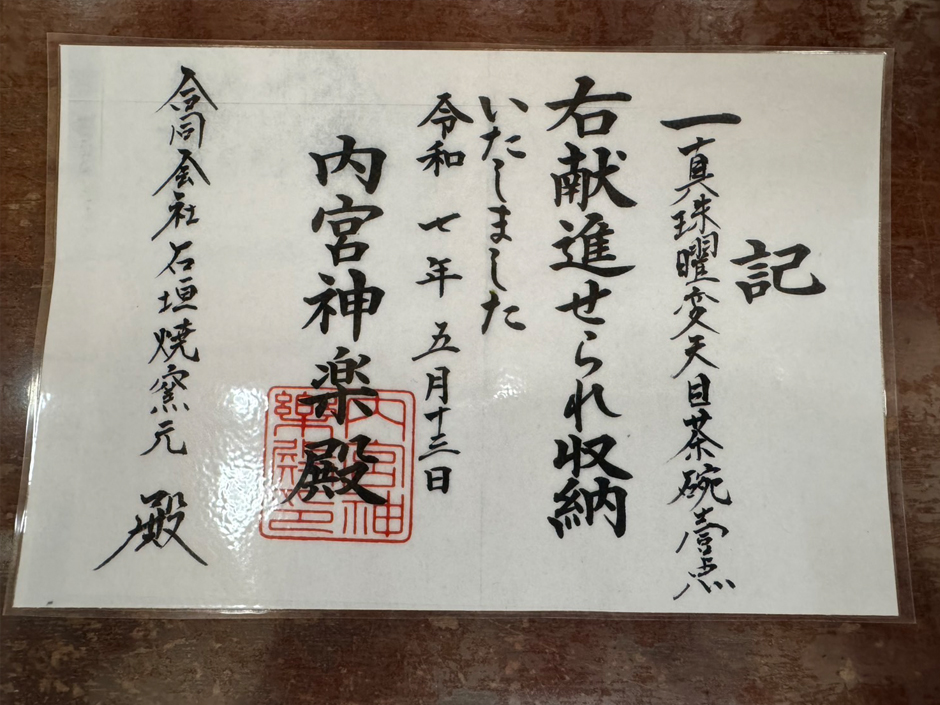 記
一 真珠曜変天目茶碗壹点
右献進せられ収納
いたしました
令和 七年 五月十三日
内宮神楽殿
内宮神楽殿印
合同会社石垣焼窯元 殿